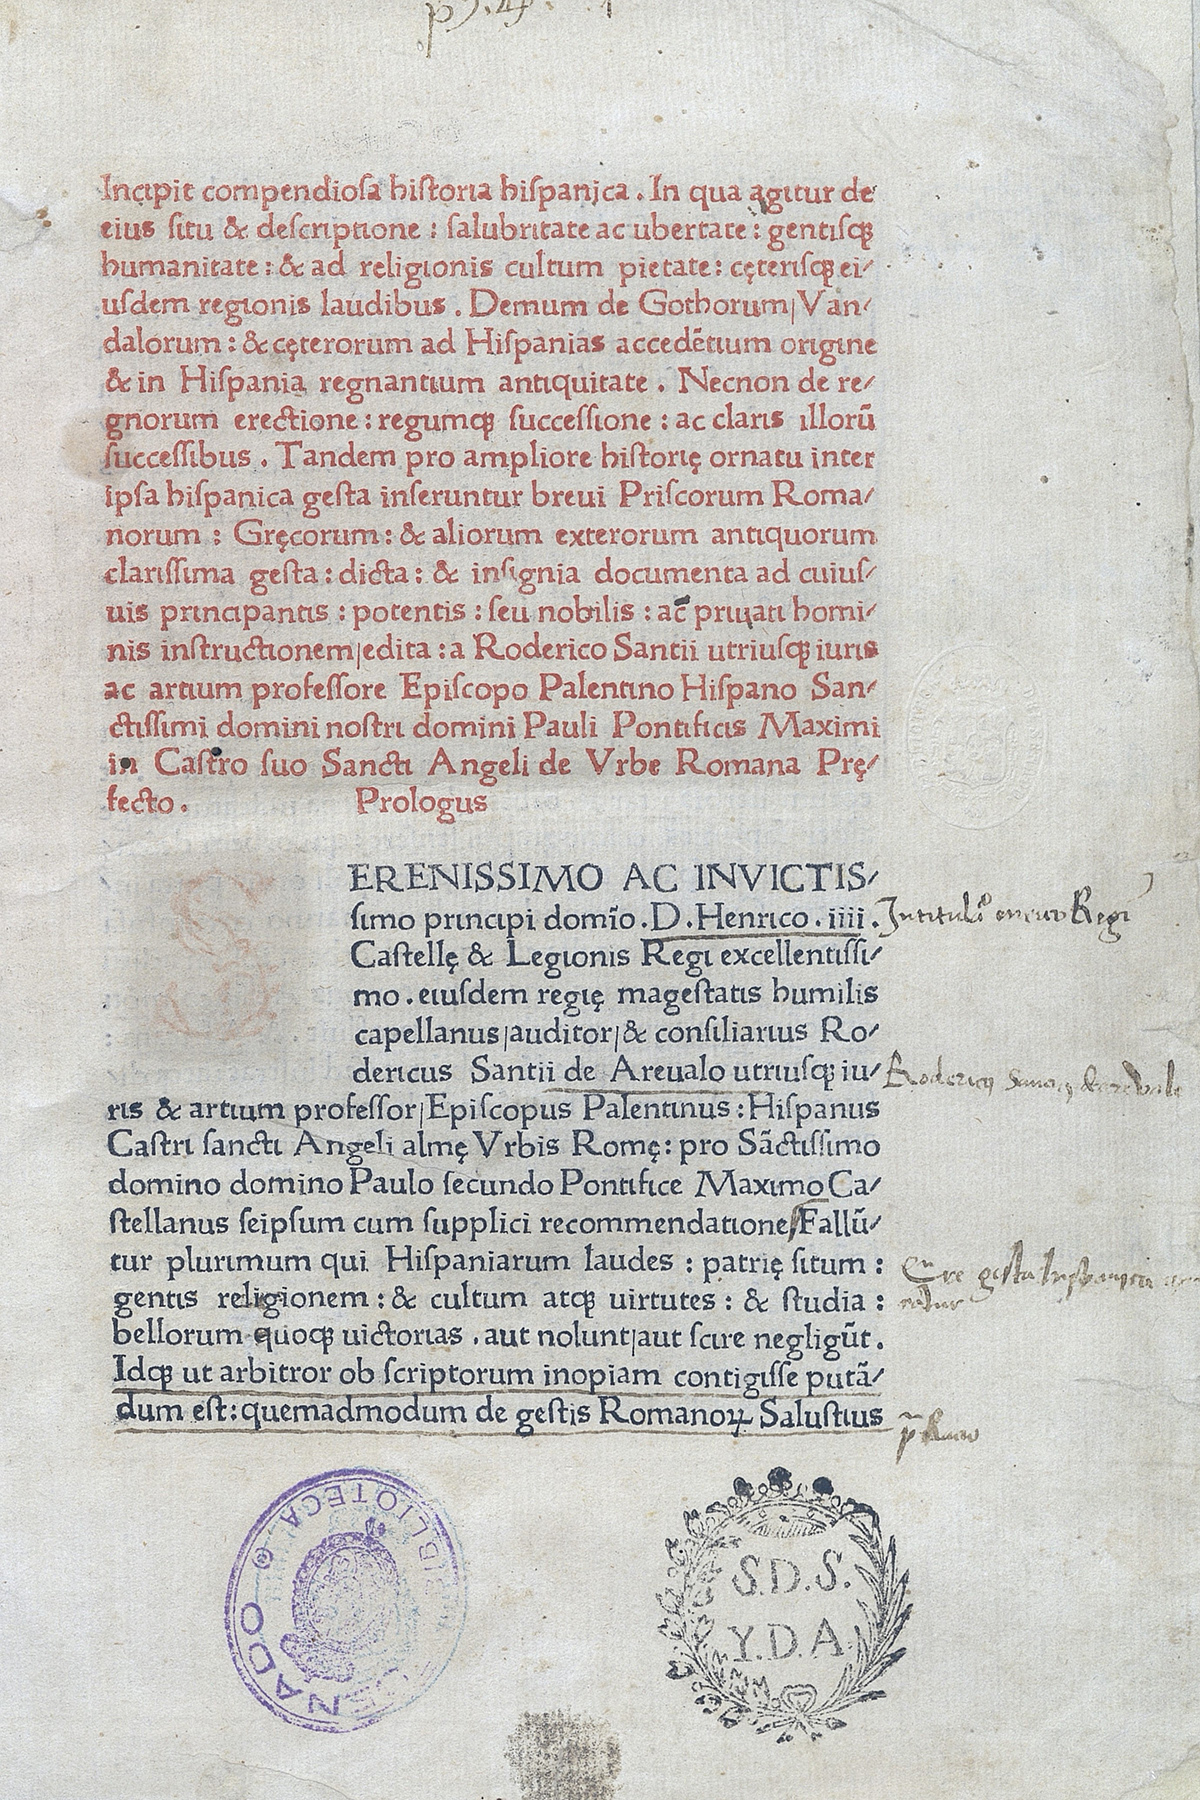 Incipit compendiosa historia hispanica . In qua agitur de
eius situ & descriptione : salubritate ac ubertate : gentisqꝫ
humanitate : & ad religionis cultum pietate : cęterisqꝫ ei/
usdem regionis laudibus . Demum de Gothorum| Van/
dalorum : & cęterorum ad Hispanias accedẽtium origine
& in Hispania regnantium antiquitate . Necnon de re/
gnorum erectione : regumqꝫ successione : ac claris illorũ
successibus . Tandem pro ampliore historię ornatu inter
ipsa hispanica gesta inseruntur brevi Priscorum Roma/
norum : Gręcorum : & aliorum exterorum antiquorum
clarissima gesta : dicta : & insignia documenta ad cuius/
uis principantis : potentis : seu nobilis : ac priuati homi/
nis instructionem|edita : a Roderico Santii utriusqꝫ iuris
ac artium professore Episcopo Palentino Hispano San/
ctissimi domini nostri domini Pauli Pontificis Maximi
in Castro suo Sancti Angeli de Vrbe Romana Prę/
fecto . Prologus
S
ERENISSIMO AC INVICTIS/
simo principi domĩo . D . Henrico . iiii .
Castellę & Legionis Regi excellentissi/
mo . eiusdem regię magestatis humilis
capellanus|auditor|& consiliarius Ro/
dericus Santii de Arevalo utriusqꝫ iu/
ris & artium professor|Episcopus Palentinus : Hispanus
Castri sancti Angeli almę Vrbis Romę : pro Sãctissimo
domino domino Paulo secundo Pontifice Maximo Ca/
stellanus seipsum cum supplici recommendatione Fallũ/
tur plurimum qui Hispaniarum laudes : patrię situm :
gentis religionem : & cultum atqꝫ uirtutes : & studia :
bellorum quoqꝫ uictorias . aut nolunt|aut scire negligũt .
Idqꝫ ut arbitror ob scriptorum inopiam contigisse putã/
dum est : quemadmodum de gestis Romanoꝝ Salustius
BIBLIOTECA
SENADO
S.D.S.
Y.D.A.